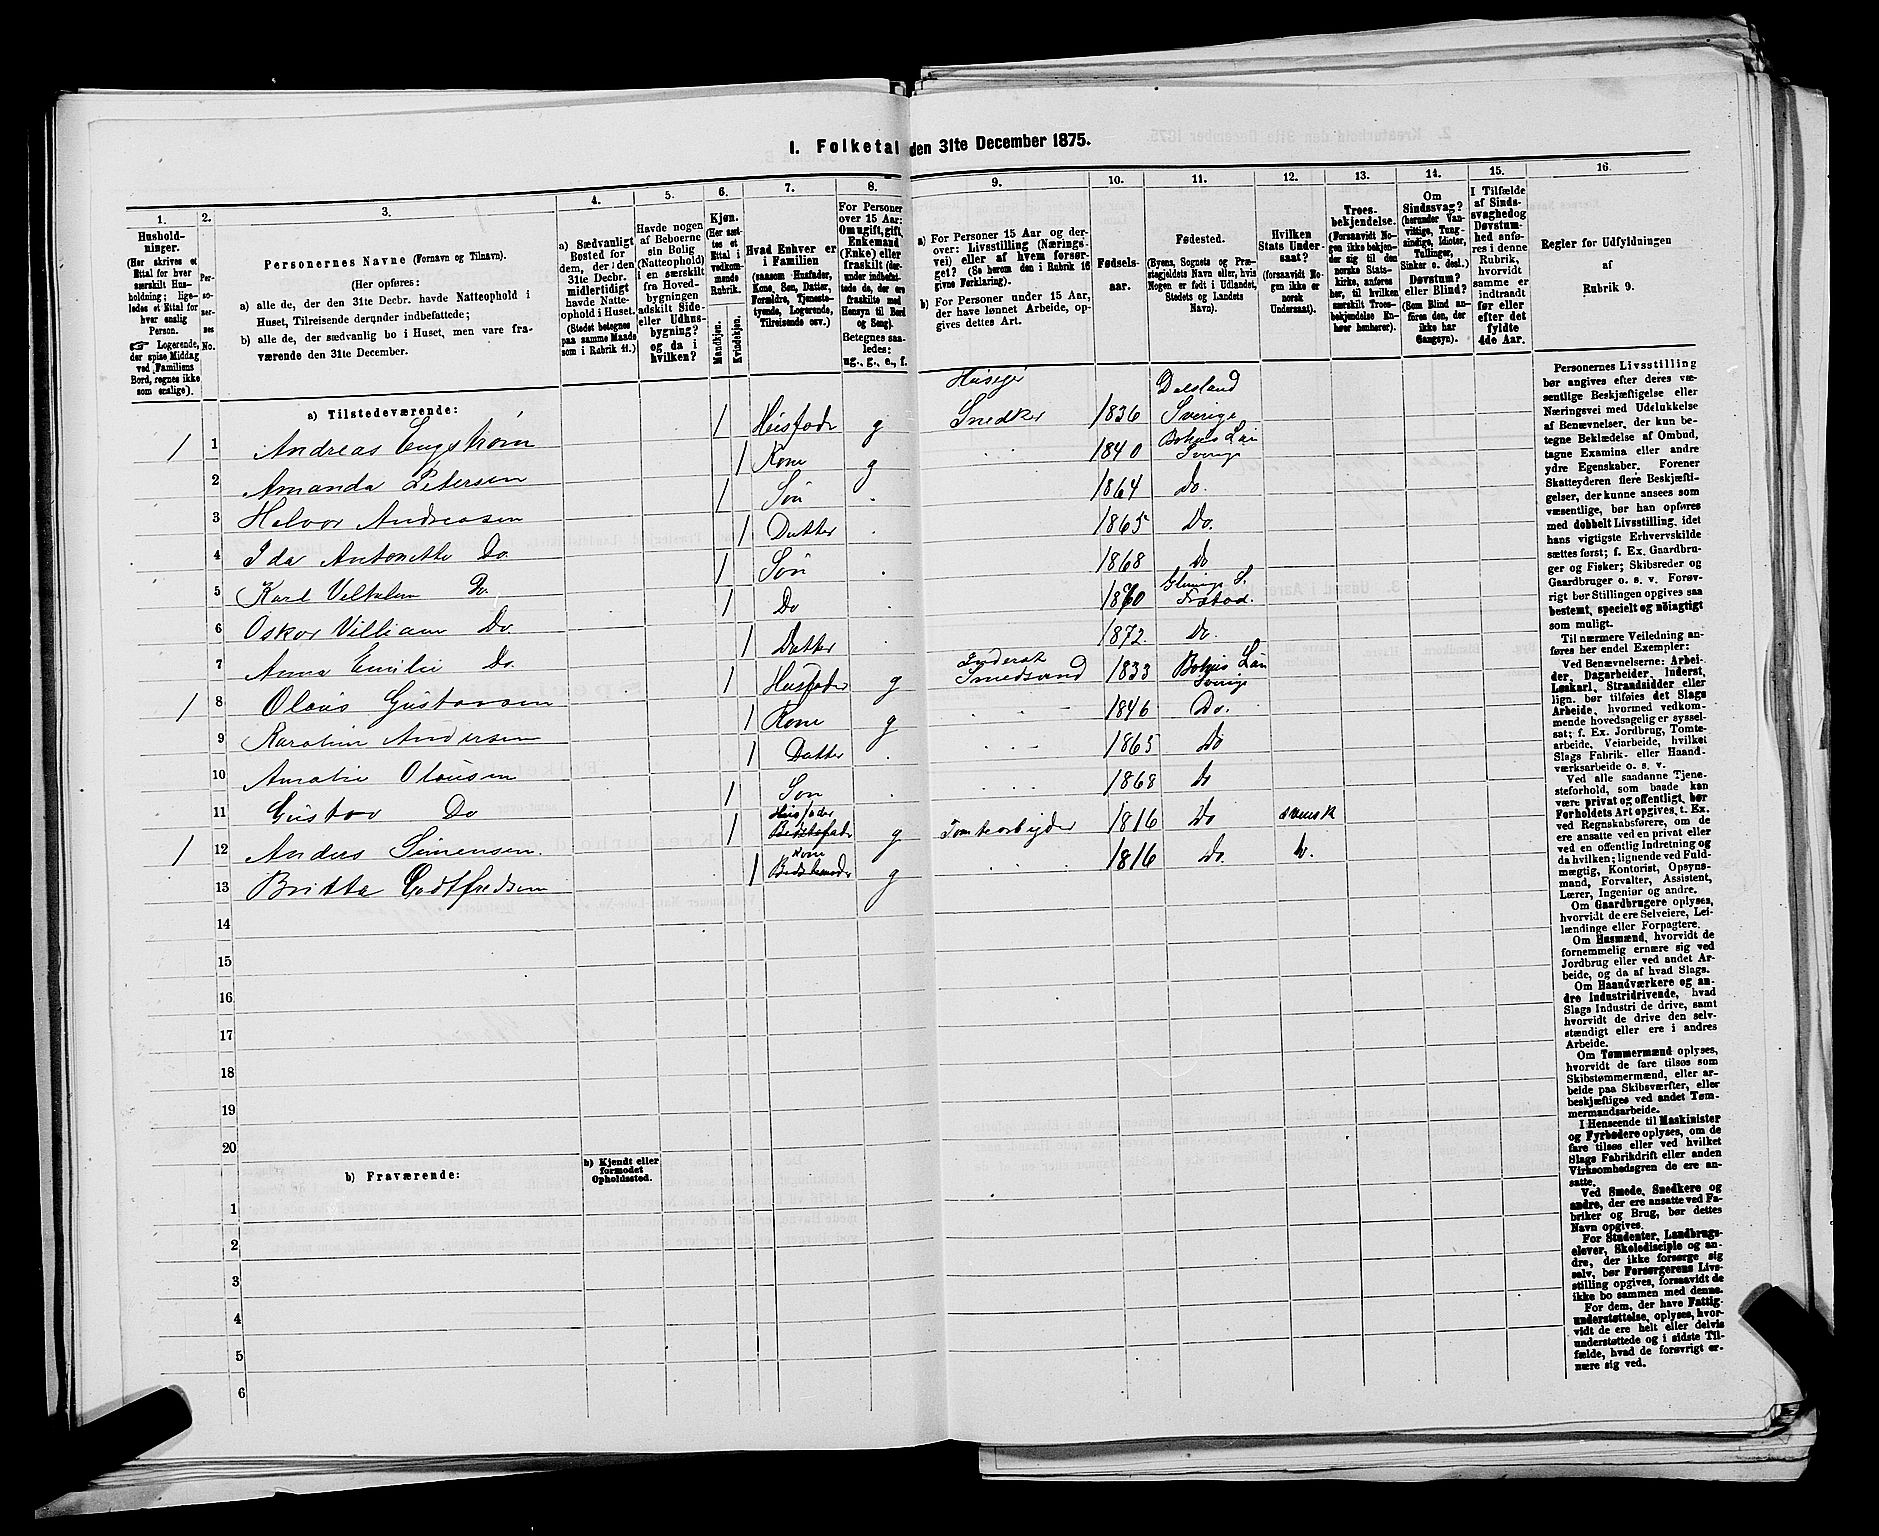 I. Folketal den 31te December 1875.
1. 2. 3. 4. 5. 6. 7. 8. 9. 10. 11. 12. 13. 14. 15. 16.
Husholdninger.
(Her skrives et
Ettal for hver
særskilt Husholdning;
ligeledes et Ettal for
hver enslig
Person.
☞ Logerende,
der spise Middag
ved Familiens
Bord, regnes ikke
som enslige).
Personernes No.
Personernes Navne (Fornavn og Tilnavn).
(Her opføres:
a) alle de, der den 31te Decbr. havde Natteophold i
Huset, Tilreisende derunder indbefattede;
b) alle de, der sædvanlig bo i Huset, men vare fraværende
den 31te December.
a) Sædvanligt
Bosted for
dem, der den
31te Decbr.
midlertidigt
havde Natteophold
i Huset.
(Stedet betegnes
paa samme Maade
som i Rubrik 11.)
Havde nogen
af Beboerne
sin Bolig
(Natteophold)
i en særskilt
fra Hovedbygningen
adskilt Side-
eller Udhusbygning?
og da i
hvilken?
Kjøn.
(Her sættes
et
Ettal i
vedkommende
Rubrik.
Mandkjøn.
Kvindekjøn.
Hvad Enhver er
i Familien
(saasom Husfader,
Kone, Søn, Datter,
Forældre, Tjenestetyende,
Logerende,
Tilreisende osv.)
For Personer
over 15 Aar:
Om ugift, gift,
Enkemand
(Enke) eller
fraskilt (derunder
indbefattede
de, der ere
fraskilte med
Hensyn til Bord
og Seng).
Betegnes saaledes:
ug., g., e., f.
a) For Personer 15 Aar og derover:
Livsstilling (Næringsvei)
eller af hvem forsørget?
(Se herom den i Rubrik 16
givne Forklaring).
b) For Personer under 15 Aar,
der have lønnet Arbeide, opgives
dettes Art.
Fødselsaar.
Fødested.
(Byens, Sognets og Præstegjeldets
Navn eller, hvis
Nogen er født i Udlandet,
Stedets og Landets
Navn).
Hvilken
Stats Undersaat?
(forsaavidt Nogen
ikke er
norsk
Undersaat).
Troesbekjendelse.
(Forsaavidt Nogen
ikke bekjender
sig til den
norske Statskirke,
anføres
her, til hvilken
særskilt Troesbekjendelse
Enhver
henhører).
Om
Sindssvag?
(herunder Vanvittige,
Tungsindige,
Idioter,
Tullinger,
Sinker o. desl.)
Døvstum?
eller Blind?
(Som Blind anføres
den, der
ikke har
Gangsyn).
I Tilfælde
af Sindssvaghed
og
Døvstumhed
anføres
i denne
Rubrik,
hvorvidt
samme er
indtraadt
før eller
efter det
fyldte
4de Aar.
Regler for Udfyldningen
af
Rubrik 9.
a) Tilstedeværende:
1 1 Andreas Engstrøm 1 Husfader g Huseier Snedker 1836 Dalsland Sverige
2 Amanda Petersen 1 Kone g 1840 Bohus Län Sverige
3 Halvor Andreasen 1 Søn 1864 Do.
4 Ida Antonette Do. 1 Datter 1865 Do.
5 Karl Vilhelm Do. 1 Søn 1868 Do
6 Oskar Villiam Do. 1 Do 1870 Glemige S. Fr.stad.
7 Anna Emilie Do. 1 Datter 1872. Do.
1 8 Olaus Gustavsen 1 Husfader g Inderst Smedsvend 1833 Bohus Län Sverige
9 Karoline Andersen 1 Kone g 1846 Do.
10 Amalie Olausen 1 Datter 1865 Do
11 Gustav Do 1 Søn 1868 Do
1 12 Anders Simensen. 1 Husfader Bedstefader g Tomtearbeider 1816 Do svensk
13 Britta Godtfredsen 1 Kone Bedstemoder g 1816 Do. Do.
14
15
16
17
18
19
20
b) Fraværende:
b) Kjendt eller
formodet
Opholdssted.
1
2
3
4
5
6
Personernes Livsstilling
bør angives efter deres væsentlige
Beskjæftigelse eller
Næringsvei med Udelukkelse
af Benævnelser, der kun betegne
Beklædelse af Ombud,
tagne Examina eller andre
ydre Egenskaber. Forener
Skatteyderen flere Beskjæftigelser,
der kunne ansees som
væsentlige, bør han opføres
med dobbelt Livsstilling, idet
hans vigtigste Erhvervskilde
sættes først; f. Ex. Gaardbruger
og Fisker; Skibsreder og
Gaardbruger o. s. v. Forøvrigt
bør Stillingen opgives saa
bestemt, specielt og nøiagtigt
som muligt.
Til nærmere Veiledning anføres
her endel Exempler:
Ved Benævnelserne: Arbeider,
Dagarbeider, Inderst,
Løskarl, Strandsidder eller
lign. bør tilføies det Slags
Arbeide, hvormed vedkommende
hovedsagelig er sysselsat;
f. Ex. Jordbrug, Tomtearbeide,
Veiarbeide, hvilket
Slags Fabrik- eller Haandværksarbeide
o. s. v.
Ved alle saadanne Tjenesteforhold,
som baade kan
være privat og offentligt, bør
Forholdets Art opgives, t. Ex.
ved Regnskabsførere, om de
ere ansatte ved en privat eller
ved en offentlig Indretning og
da hvilken; lignende ved Fuldmægtig,
Kontorist, Opsynsmand,
Forvalter, Assistent,
Lærer, Ingeniør og andre.
Om Gaardbrugere oplyses,
hvorvidt de ere Selveiere, Leilændinge
eller Forpagtere.
Om Husmænd, hvorvidt de
fornemmelig ernære sig ved
Jordbrug eller ved andet Arbeide,
og da af hvad Slags.
Om Haandværkere og andre
Industridrivende, hvad
Slags Industri de drive, samt
hvorvidt de drive den selvstændigt
eller ere i andres
Arbeide.
Om Tømmermænd oplyses,
hvorvidt de fare tilsøs som
Skibstømmermænd, eller arbeide
paa Skibsværfter, eller
beskjæftiges ved andet Tømmermandsarbeide.
I Henseende til Maskinister
og Fyrbødere oplyses, om de
fare tilsøs eller ved hvilket
Slags Fabrikdrift eller anden
Virksomhedsgren de ere ansatte.
Ved Smede, Snedkere og
andre, der ere ansatte ved Fabriker
og Brug, bør dettes
Navn opgives.
For Studenter, Landbrugselever,
Skoledisciple og andre,
der ikke forsørge sig
selv, bør Forsørgerens Livsstilling
opgives, forsaavidt de
ikke bo sammen med denne.
For dem, der have Fattigunderstøttelse,
oplyses, hvorvidt
de ere helt eller delvis
understøttede og i sidste Tilfælde,
hvad de forøvrigt ernære
sig ved.